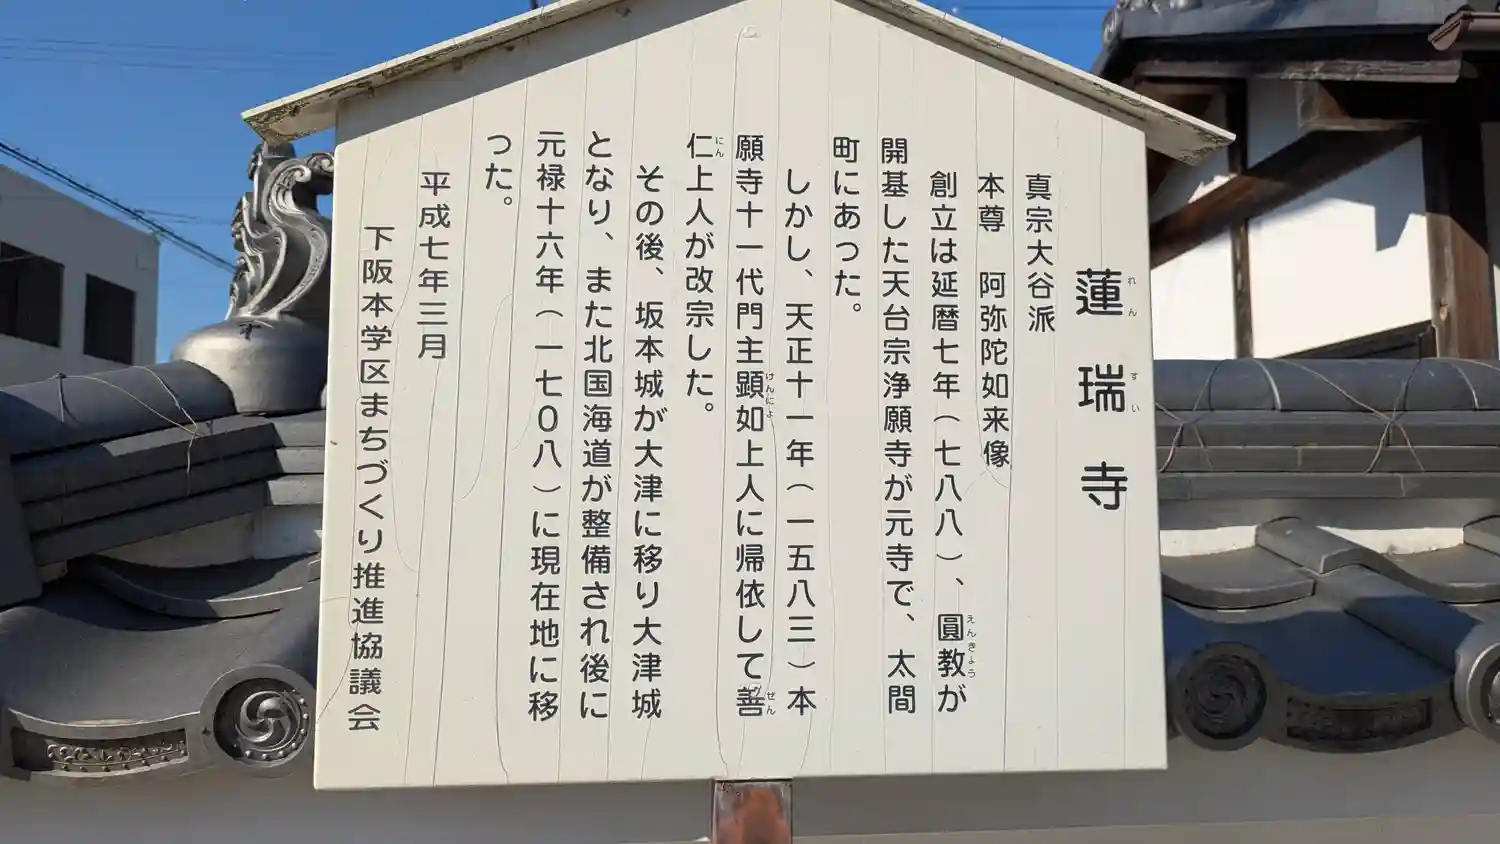 蓮瑞寺
れんずい
真宗大谷派
本尊　阿弥陀如来像
創立は延暦七年(七八八)、圓教が
えんきょう
開基した天台宗浄願寺が元寺で、太間
町にあった。
しかし、天正十一年(一五八三)本
願寺十一代門主顕如上人に帰依して善
けんにょ
ぜん
仁上人が改宗した。
にん
その後、坂本城が大津に移り大津城
となり、また北国海道が整備され後に
元禄十六年(一七0八)に現在地に移
った。
平成七年三月
下阪本学区まちづくり推進協議会